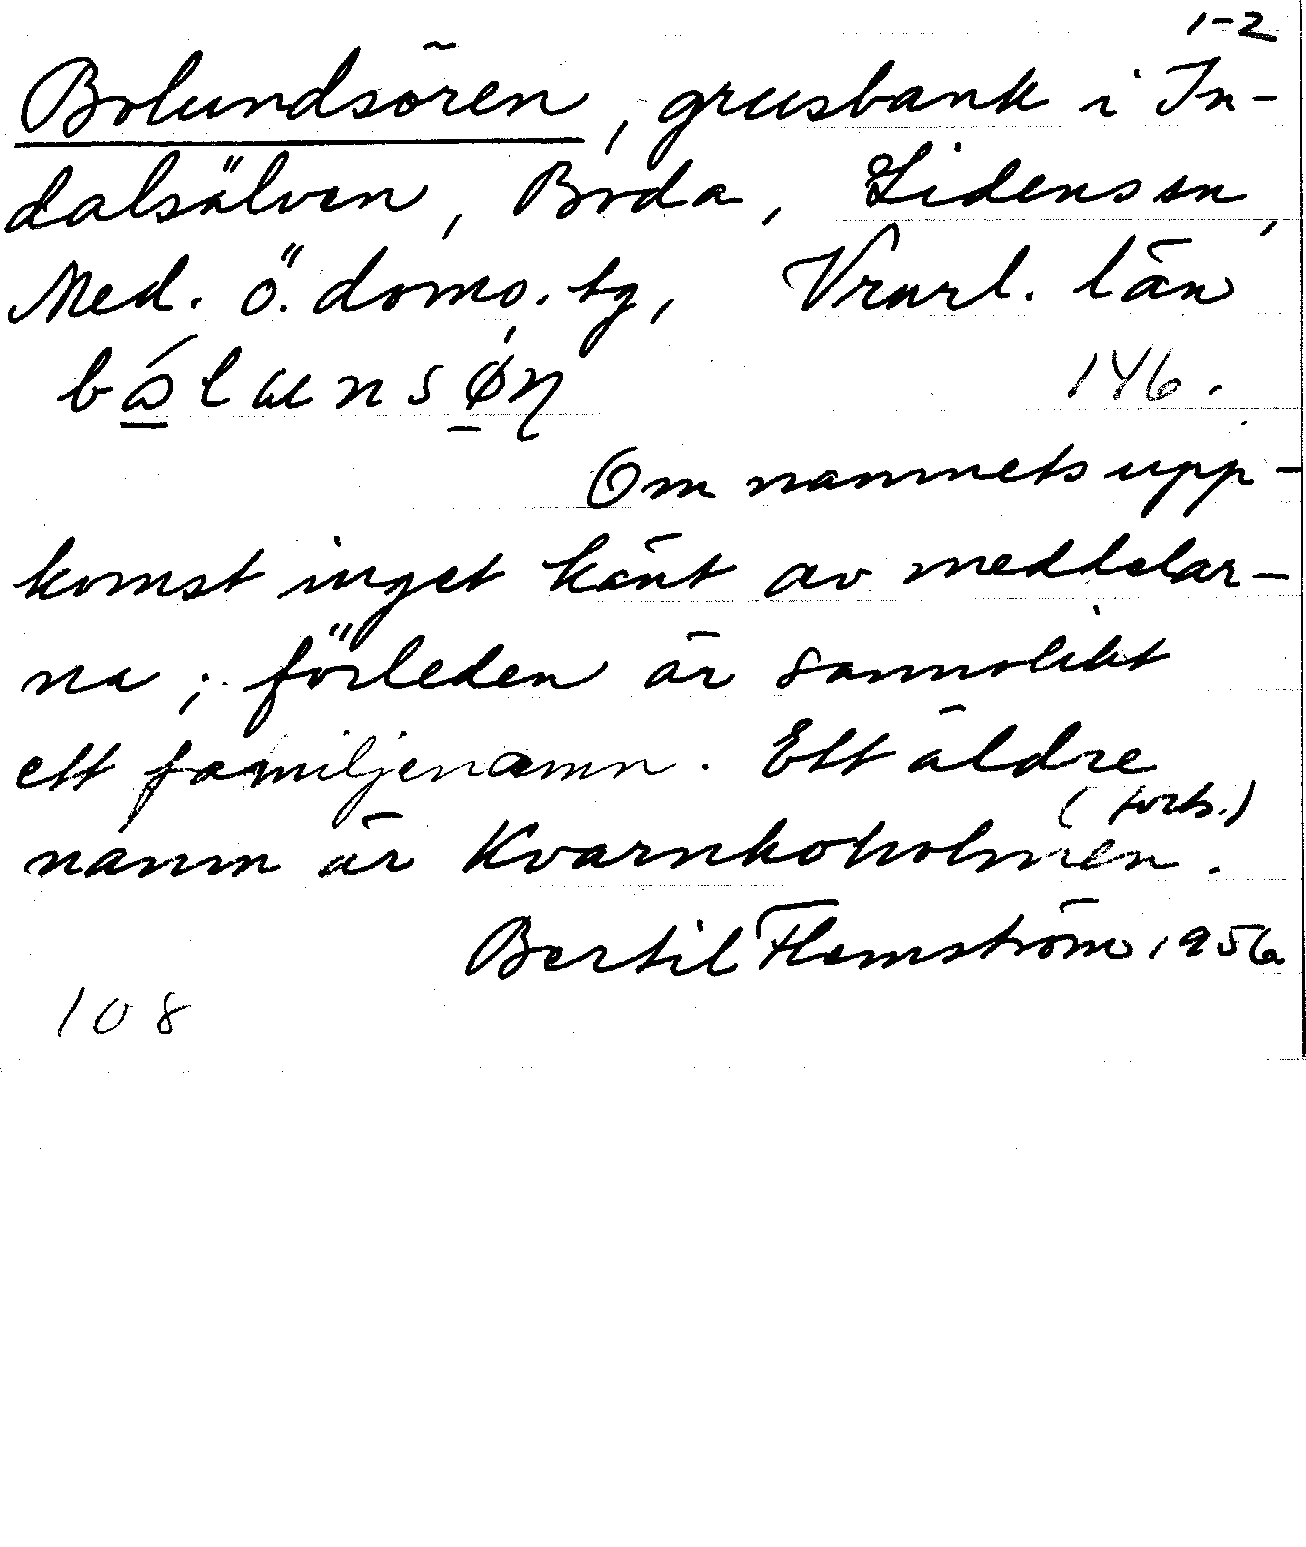 1-2
Bolundsören, grusbank i In-
dalsälven, Boda, Lidens sn,
Med. ö. doms. tg, Vrnrl. län
146.
Om namnets upp-
komst inget känt av meddelar-
na; förleden är sannolikt
ett familjenamn. Ett äldre
namn är Kvarnkoholmen.
(forts.)
Bertil Flemström 1956
108